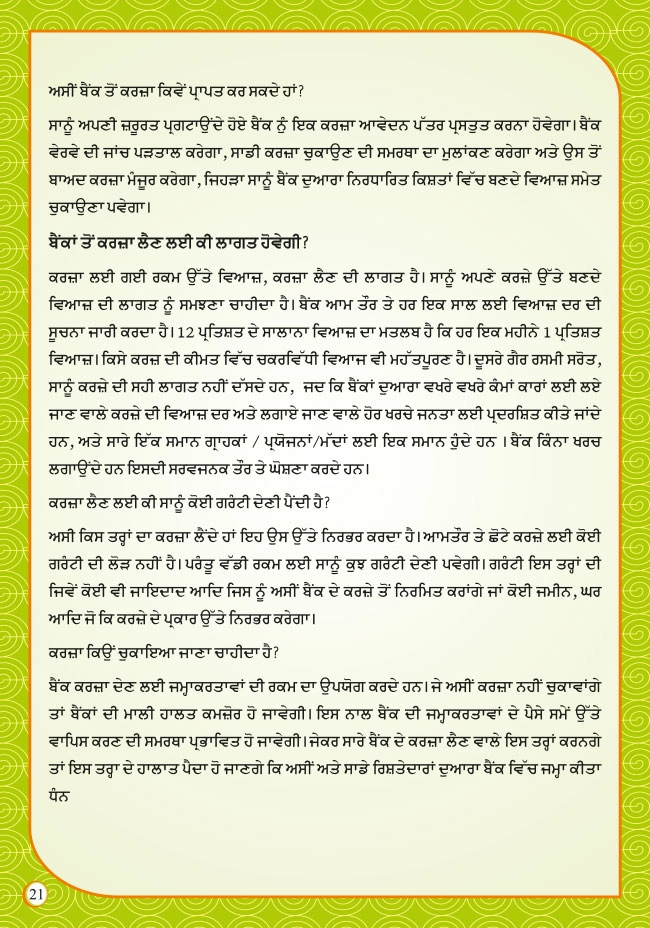 ਅਸੀਂ ਬੈਂਕ ਤੋਂ ਕਰਜ਼ਾ ਕਿਵੇਂ ਪ੍ਰਾਪਤ ਕਰ ਸਕਦੇ ਹਾਂ?
ਸਾਨੂੰ ਅਪਣੀ ਜ਼ਰੂਰਤ ਪ੍ਰਗਟਾਉਂਦੇ ਹੋਏ ਬੈਂਕ ਨੂੰ ਇਕ ਕਰਜ਼ਾ ਆਵੇਦਨ ਪੱਤਰ ਪ੍ਰਸਤੁਤ ਕਰਨਾ ਹੋਵੇਗਾ। ਬੈਂਕ
ਵੇਰਵੇ ਦੀ ਜਾਂਚ ਪੜਤਾਲ ਕਰੇਗਾ, ਸਾਡੀ ਕਰਜ਼ਾ ਚੁਕਾਉਣ ਦੀ ਸਮਰਥਾ ਦਾ ਮੁਲਾਂਕਣ ਕਰੇਗਾ ਅਤੇ ਉਸ ਤੋਂ
ਬਾਅਦ ਕਰਜ਼ਾ ਮੰਜੂਰ ਕਰੇਗਾ, ਜਿਹੜਾ ਸਾਨੂੰ ਬੈਂਕ ਦੁਆਰਾ ਨਿਰਧਾਰਿਤ ਕਿਸ਼ਤਾਂ ਵਿੱਚ ਬਣਦੇ ਵਿਆਜ਼ ਸਮੇਤ
ਚੁਕਾਉਣਾ ਪਵੇਗਾ।
ਬੈਂਕਾਂ ਤੋਂ ਕਰਜ਼ਾ ਲੈਣ ਲਈ ਕੀ ਲਾਗਤ ਹੋਵੇਗੀ?
ਕਰਜ਼ਾ ਲਈ ਗਈ ਰਕਮ ਉੱਤੇ ਵਿਆਜ਼, ਕਰਜ਼ਾ ਲੈਣ ਦੀ ਲਾਗਤ ਹੈ। ਸਾਨੂੰ ਅਪਣੇ ਕਰਜ਼ੇ ਉੱਤੇ ਬਣਦੇ
ਵਿਆਜ਼ ਦੀ ਲਾਗਤ ਨੂੰ ਸਮਝਣਾ ਚਾਹੀਦਾ ਹੈ। ਬੈਂਕ ਆਮ ਤੌਰ ਤੇ ਹਰ ਇਕ ਸਾਲ ਲਈ ਵਿਆਜ਼ ਦਰ ਦੀ
ਸੂਚਨਾ ਜਾਰੀ ਕਰਦਾ ਹੈ। 12 ਪ੍ਰਤਿਸ਼ਤ ਦੇ ਸਾਲਾਨਾ ਵਿਆਜ਼ ਦਾ ਮਤਲਬ ਹੈ ਕਿ ਹਰ ਇਕ ਮਹੀਨੇ 1 ਪ੍ਰਤਿਸ਼ਤ
ਵਿਆਜ਼। ਕਿਸੇ ਕਰਜ਼ ਦੀ ਕੀਮਤ ਵਿੱਚ ਚਕਰਵਿੱਧੀ ਵਿਆਜ ਵੀ ਮਹੱਤਪੂਰਣ ਹੈ। ਦੂਸਰੇ ਗੈਰ ਰਸਮੀ ਸਰੋਤ,
ਸਾਨੂੰ ਕਰਜ਼ੇ ਦੀ ਸਹੀ ਲਾਗਤ ਨਹੀਂ ਦੱਸਦੇ ਹਨ, ਜਦ ਕਿ ਬੈਂਕਾਂ ਦੁਆਰਾ ਵਖਰੇ ਵਖਰੇ ਕੰਮਾਂ ਕਾਰਾਂ ਲਈ ਲਏ
ਜਾਣ ਵਾਲੇ ਕਰਜ਼ੇ ਦੀ ਵਿਆਜ਼ ਦਰ ਅਤੇ ਲਗਾਏ ਜਾਣ ਵਾਲੇ ਹੋਰ ਖਰਚੇ ਜਨਤਾ ਲਈ ਪ੍ਰਦਰਸ਼ਿਤ ਕੀਤੇ ਜਾਂਦੇ
ਹਨ, ਅਤੇ ਸਾਰੇ ਇੱਕ ਸਮਾਨ ਗ੍ਰਾਹਕਾਂ / ਪ੍ਰਯੋਜਨਾਂ/ਮੱਦਾਂ ਲਈ ਇਕ ਸਮਾਨ ਹੁੰਦੇ ਹਨ । ਬੈਂਕ ਕਿੰਨਾ ਖਰਚ
ਲਗਾਉਂਦੇ ਹਨ ਇਸਦੀ ਸਰਵਜਨਕ ਤੌਰ ਤੇ ਘੋਸ਼ਣਾ ਕਰਦੇ ਹਨ।
ਕਰਜ਼ਾ ਲੈਣ ਲਈ ਕੀ ਸਾਨੂੰ ਕੋਈ ਗਰੰਟੀ ਦੇਣੀ ਪੈਂਦੀ ਹੈ?
ਅਸੀ ਕਿਸ ਤਰ੍ਹਾਂ ਦਾ ਕਰਜ਼ਾ ਲੈਂਦੇ ਹਾਂ ਇਹ ਉਸ ਉੱਤੇ ਨਿਰਭਰ ਕਰਦਾ ਹੈ। ਆਮਤੌਰ ਤੇ ਛੋਟੇ ਕਰਜ਼ੇ ਲਈ ਕੋਈ
ਗਰੰਟੀ ਦੀ ਲੋੜ ਨਹੀਂ ਹੈ। ਪਰੰਤੂ ਵੱਡੀ ਰਕਮ ਲਈ ਸਾਨੂੰ ਕੁਝ ਗਰੰਟੀ ਦੇਣੀ ਪਵੇਗੀ। ਗਰੰਟੀ ਇਸ ਤਰ੍ਹਾਂ ਦੀ
ਜਿਵੇਂ ਕੋਈ ਵੀ ਜਾਇਦਾਦ ਆਦਿ ਜਿਸ ਨੂੰ ਅਸੀਂ ਬੈਂਕ ਦੇ ਕਰਜ਼ੇ ਤੋਂ ਨਿਰਮਿਤ ਕਰਾਂਗੇ ਜਾਂ ਕੋਈ ਜਮੀਨ, ਘਰ
ਆਦਿ ਜੋ ਕਿ ਕਰਜ਼ੇ ਦੇ ਪ੍ਰਕਾਰ ਉੱਤੇ ਨਿਰਭਰ ਕਰੇਗਾ।
ਕਰਜ਼ਾ ਕਿਉਂ ਚੁਕਾਇਆ ਜਾਣਾ ਚਾਹੀਦਾ ਹੈ?
ਬੈਂਕ ਕਰਜ਼ਾ ਦੇਣ ਲਈ ਜਮ੍ਹਾਕਰਤਾਵਾਂ ਦੀ ਰਕਮ ਦਾ ਉਪਯੋਗ ਕਰਦੇ ਹਨ। ਜੇ ਅਸੀਂ ਕਰਜ਼ਾ ਨਹੀਂ ਚੁਕਾਵਾਂਗੇ
ਤਾਂ ਬੈਂਕਾਂ ਦੀ ਮਾਲੀ ਹਾਲਤ ਕਮਜ਼ੋਰ ਹੋ ਜਾਵੇਗੀ। ਇਸ ਨਾਲ ਬੈਂਕ ਦੀ ਜਮ੍ਹਾਕਰਤਾਵਾਂ ਦੇ ਪੈਸੇ ਸਮੇਂ ਉੱਤੇ
ਵਾਪਿਸ ਕਰਣ ਦੀ ਸਮਰਥਾ ਪ੍ਰਭਾਵਿਤ ਹੋ ਜਾਵੇਗੀ। ਜੇਕਰ ਸਾਰੇ ਬੈਂਕ ਦੇ ਕਰਜ਼ਾ ਲੈਣ ਵਾਲੇ ਇਸ ਤਰ੍ਹਾਂ ਕਰਨਗੇ
ਤਾਂ ਇਸ ਤਰ੍ਹਾ ਦੇ ਹਾਲਾਤ ਪੈਦਾ ਹੋ ਜਾਣਗੇ ਕਿ ਅਸੀਂ ਅਤੇ ਸਾਡੇ ਰਿਸ਼ਤੇਦਾਰਾਂ ਦੁਆਰਾ ਬੈਂਕ ਵਿੱਚ ਜਮ੍ਹਾ ਕੀਤਾ
ਧੰਨ
21